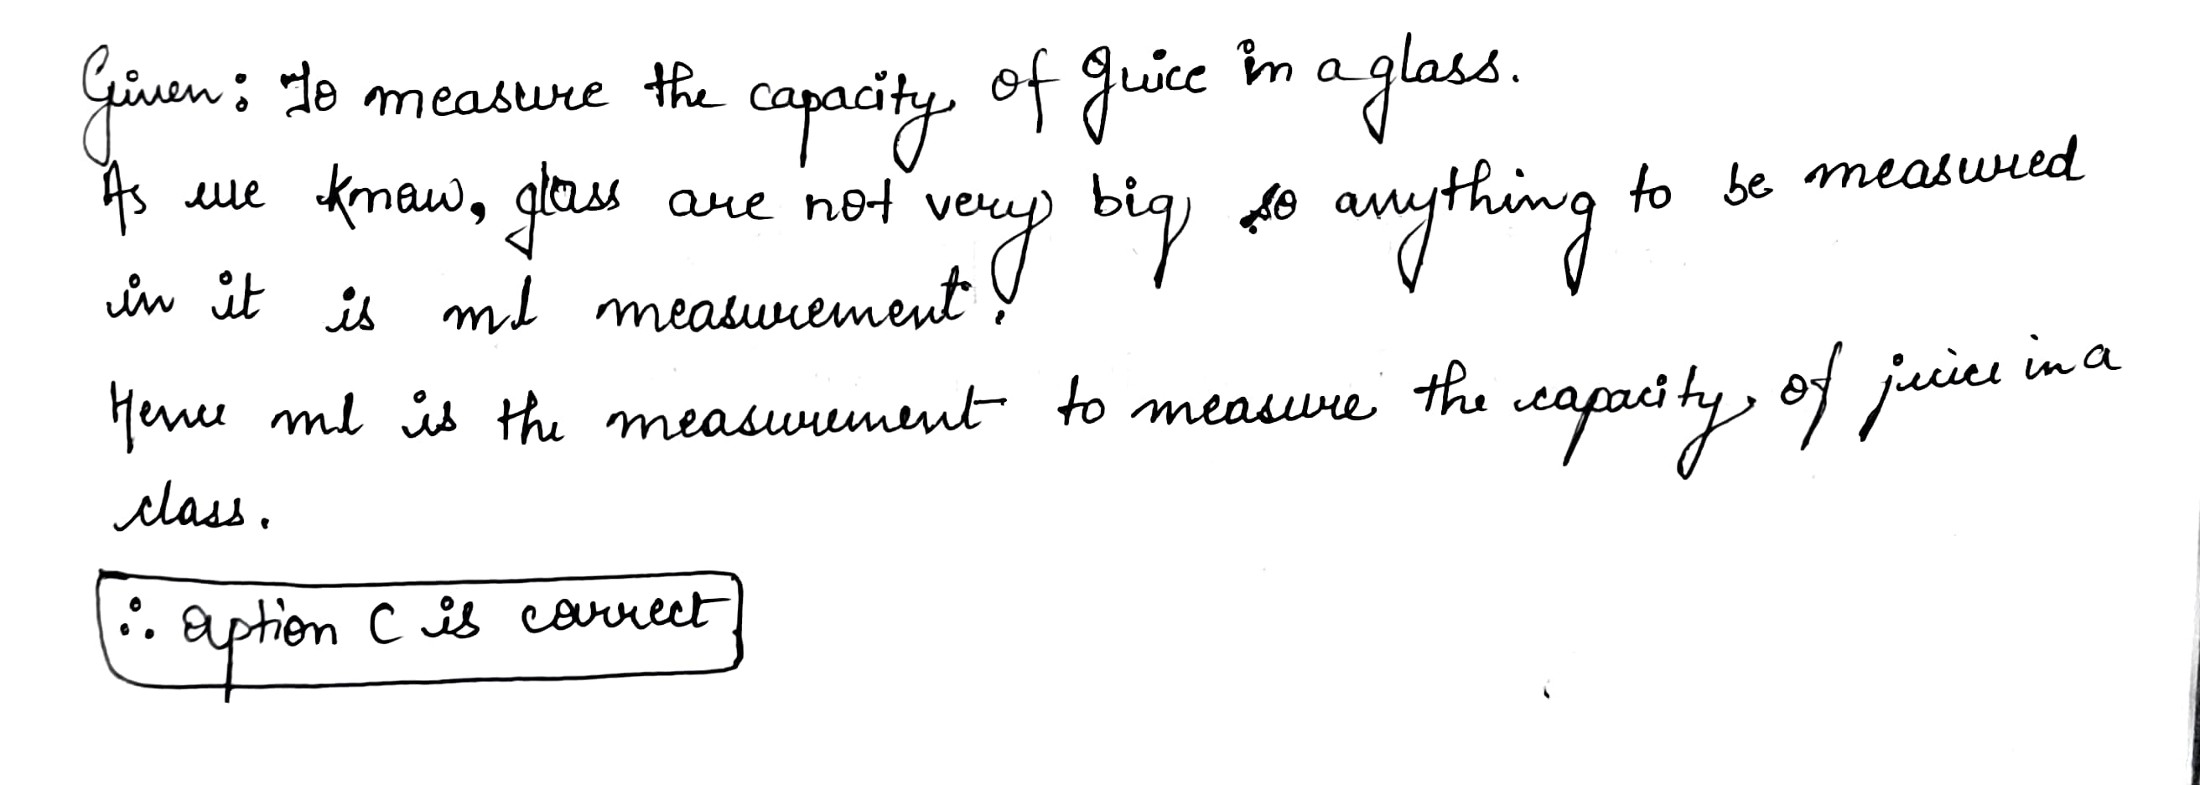 Given: To measure the capacity of juice in a glass.
As we know, glass are not very big so anything to be measured
in it is ml measurement.
Hence ml is the measurement to measure the capacity of juice in a
class.
∴ option C is correct